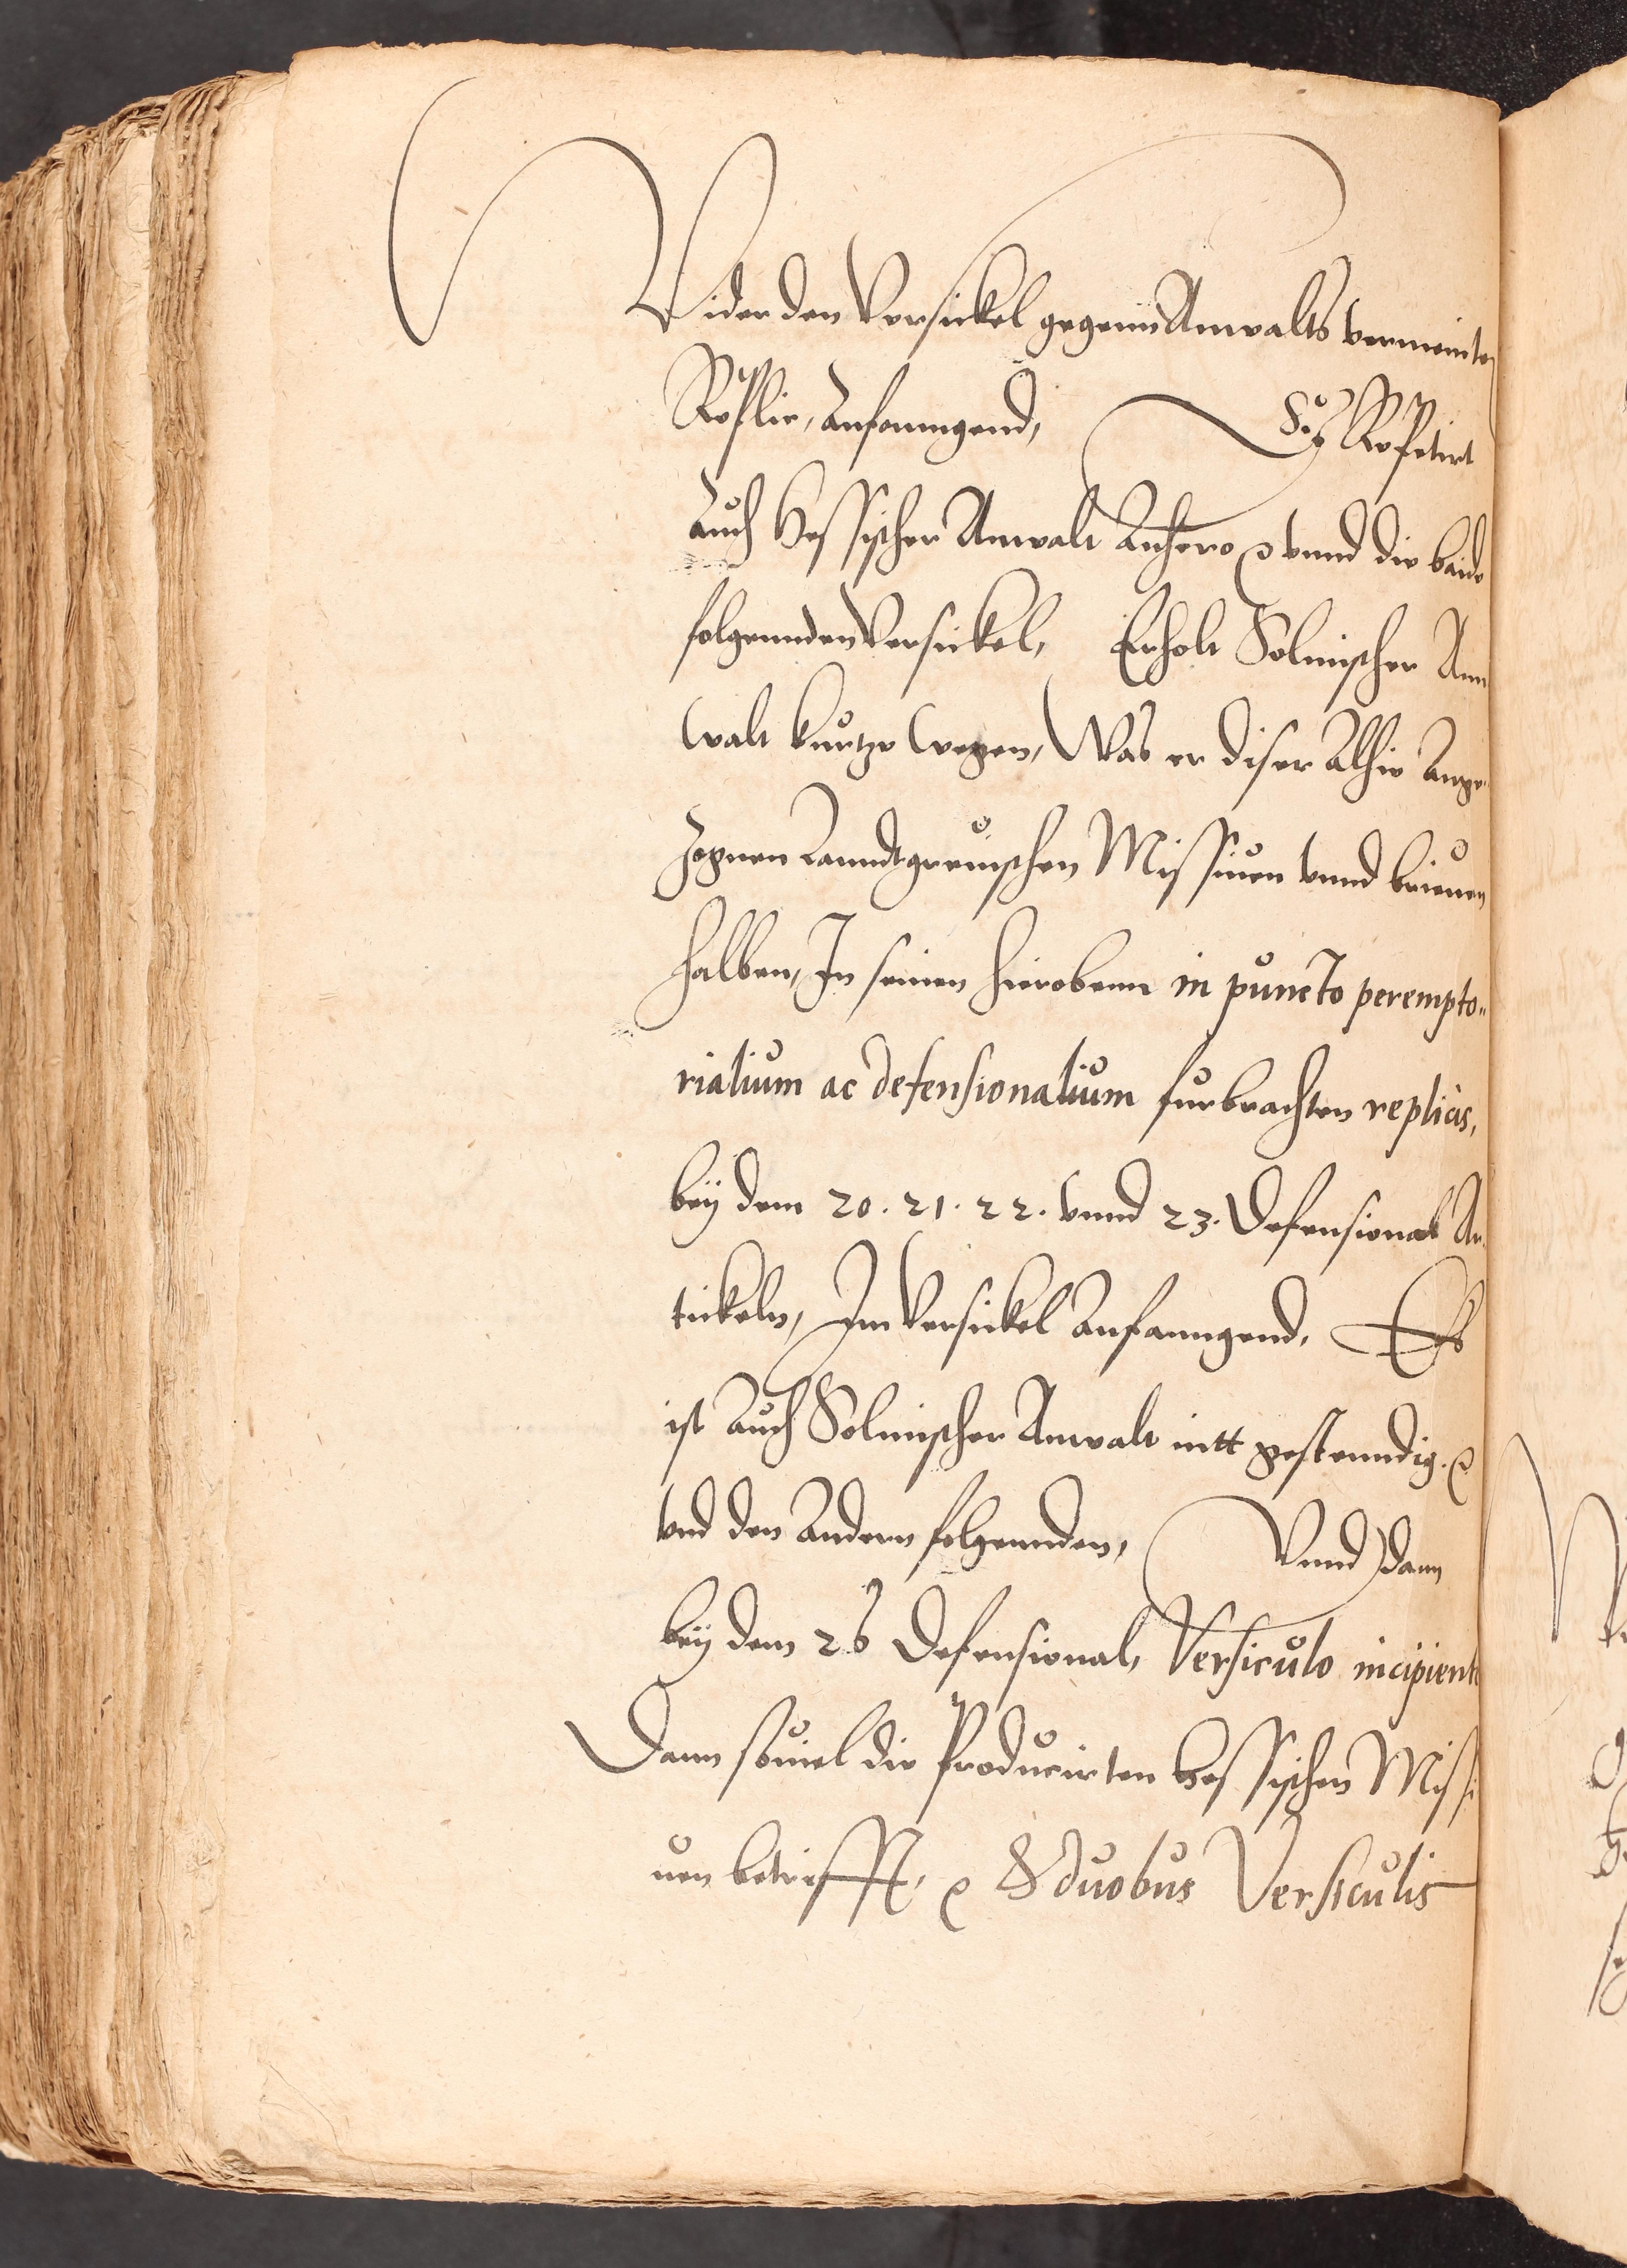 Wider den Versickel gegenn Anwalts vermeinte
Replic, Anfanngend, So Repetirt
auch Hessischer Anwalt Anhero &c vnnd die baide
folgennden Versickel, Erholt Solmischer Ann
walt kurtze wegen, Was er diser Alhie Ange
zognen Lanndtgreuischen Missiuen vnnd brieuen
halben, In seinen hieobenn in puncto perempto„
rialium ac defensionalium furbrachten replicis,
bey dem 20. 21. 22. vnnd 23. Defensional Ar
tickeln, Im Versickel Anfanngend, Es
ist auch Solmischer Anwalt nitt gestenndig. &c
vnd den Andern folgennden, Vnnd dann
bey dem 26 Defensional, Versiculo incipient
Dann souiel die Producirten Hessischen Missi
uen betrifft, &c & duobus Versiculis